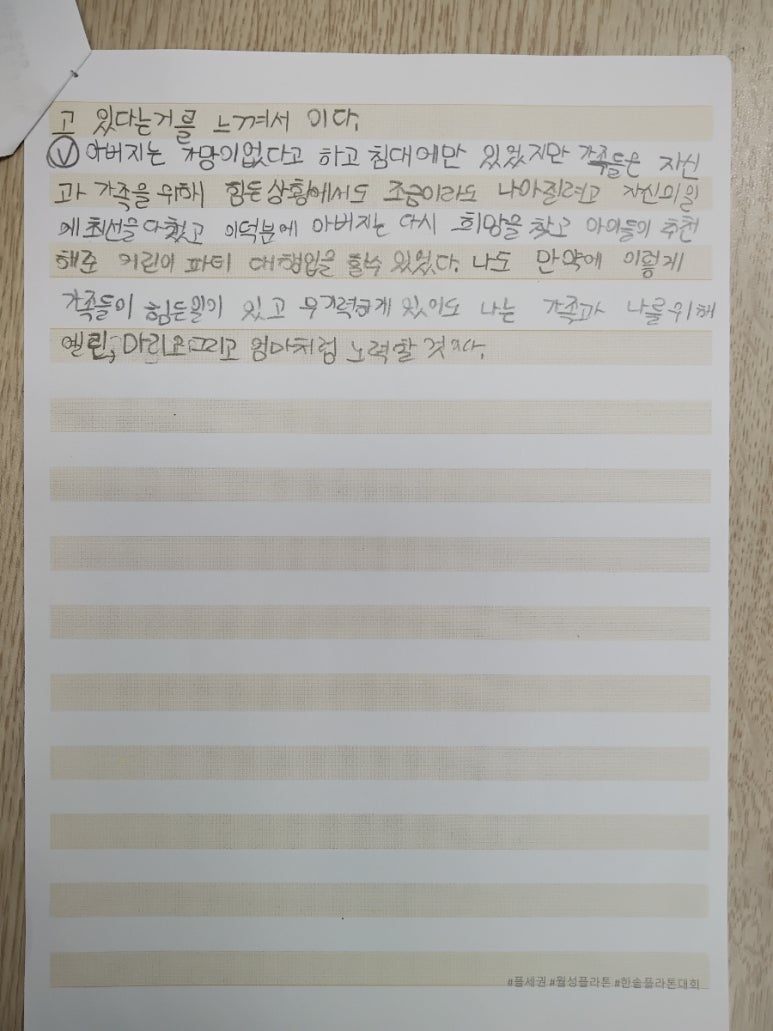 고 있다는거를 느껴서 이다.
Ⓥ 아버지는 가망이없다고 하고 침대에만 있었지만 가족들은 자신
과 가족을 위해 힘든상황에서도 조금이라도 나아질려고 자신의일
에최선을다했고 이덕분에 아버지는 다시 희망을 찾고 아이들이 추천
해준 어린이 파티 대행업을 할수 있었다. 나도 만약에 이렇게
가족들이 힘든일이 있고 무기력하게 있어도 나는 가족과 나를위해
엘린, 마리오 그리고 엄마처럼 노력할 것이다.
#플세권 #월성플라톤 #한솔플라톤대회